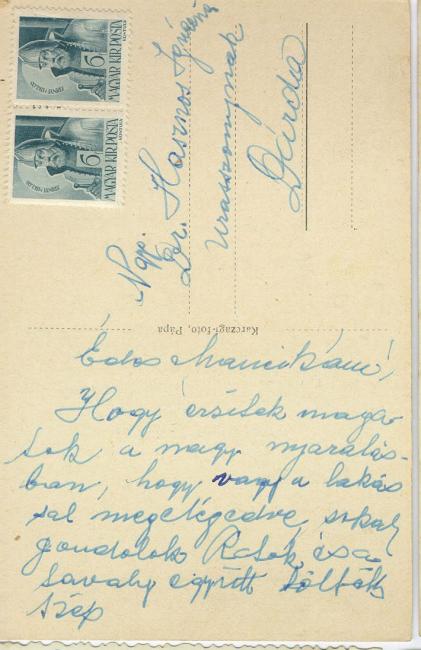 MAGYAR KIR. POSTA
6
MAGYAR KIR. POSTA
6
Nagys.
Dr. Hasznos Ignácné
Urasszonynak
Dárda
Karczagi-foto, Pápa
Édes Mancikám,
Hogy érzitek maga-
tok a nagy nyaralás-
ban, hogy vagy a lakás
sal megelégedve, sokat
gondolok Rátok, és a
tavaly együtt töltött
szép